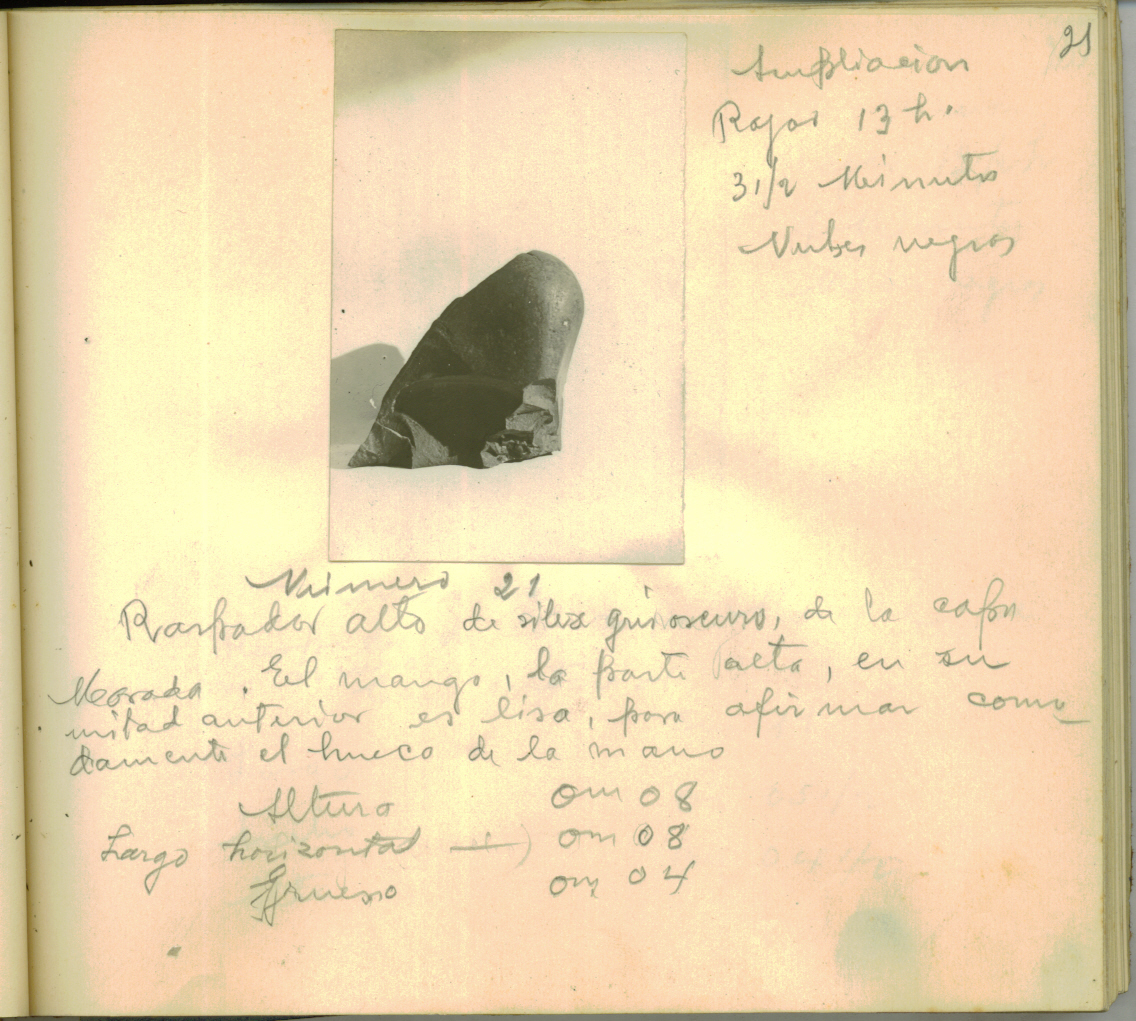 21
Ampliacion
Rojos 13 h.
3 1/2 Minutos
Nubes negras
Número 21
Raspador alto de silex gris oscuro, de la capa
Morada. El mango, la parte alta, en su
mitad anterior es lisa, para afirmar como
damente el hueco de la mano
Altura 0m 08
Largo horizontal 0m 08
Grueso 0m 04